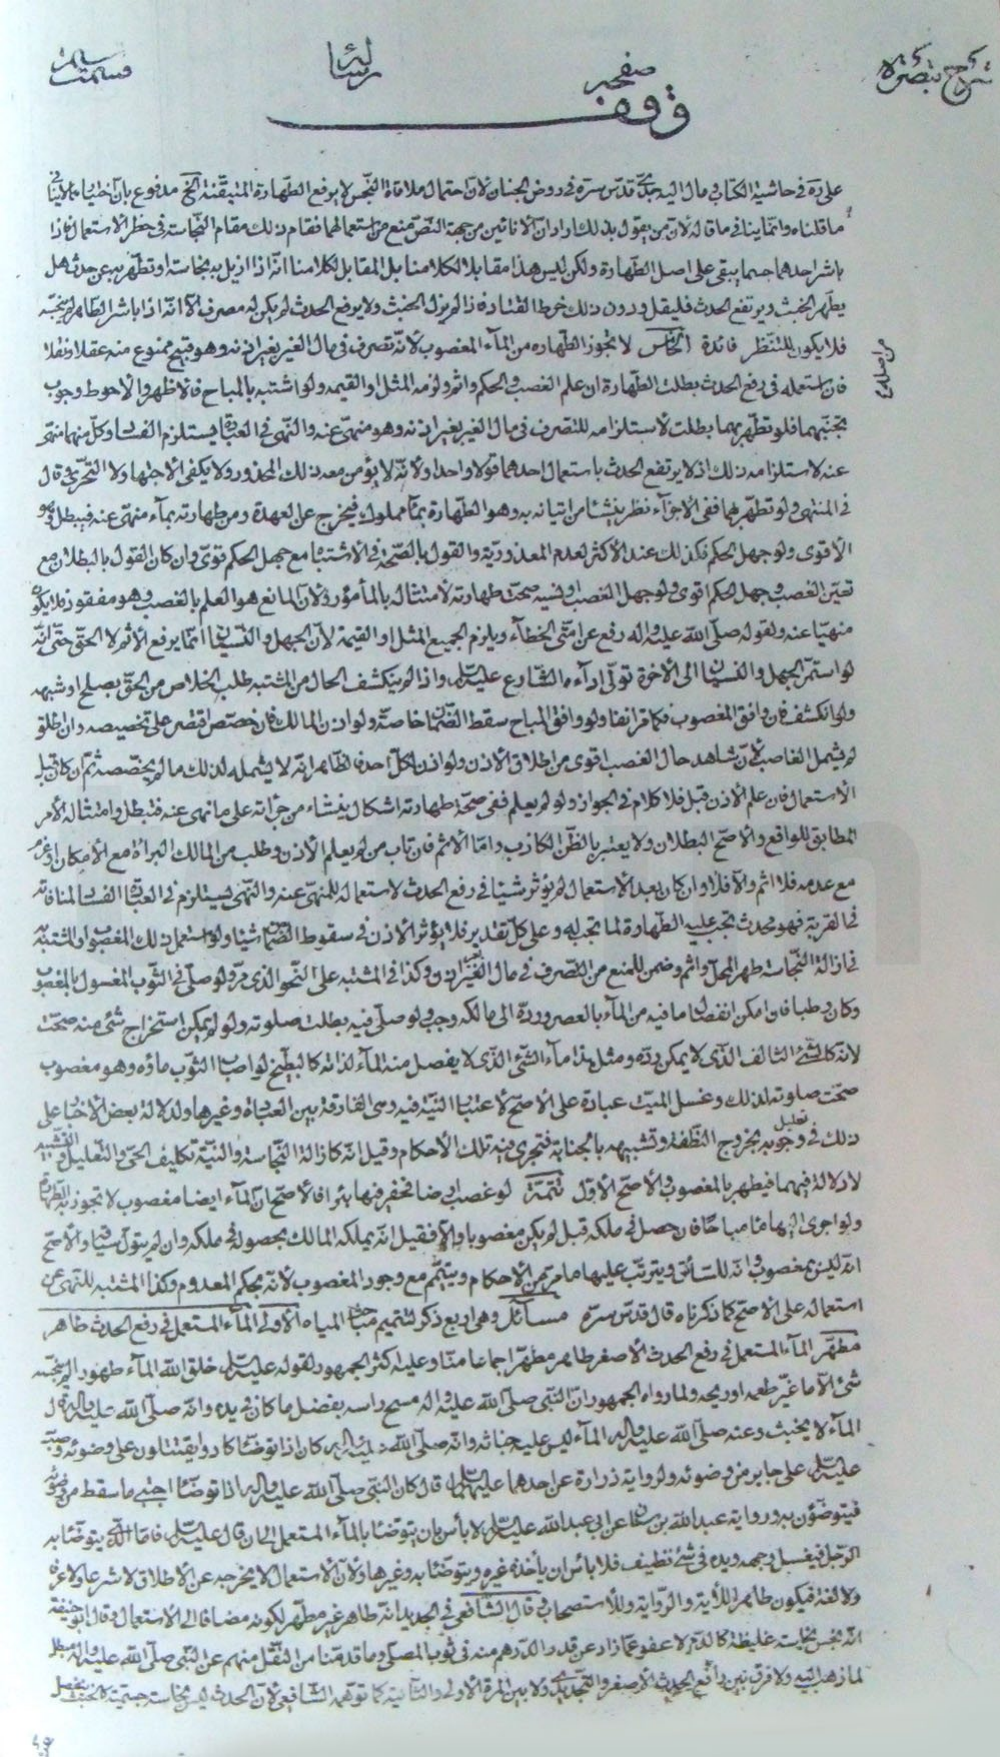 شرح تبصرة
صفحه
رسائل
وقف
على رة في حاشية الكتاب ومال اليه جدّى قدّس سرّه في روض الجنان لانّ احتمال ملاقاة النّجس لا يرفع الطّهارة المتيقّنة الخ مدفوع بانّ
ما قلناه وانّما ينافى ما قاله لانّ من يقول بذلك اراد انّ الانائين من جهة النّص منع من استعمالهما فقام ذلك مقام النّجاسة في حظر الاستعمال فاذا
باشر احدهما جسما يبقى على اصل الطّهارة ولكن ليس هذا مقابلا لكلامنا بل المقابل لكلامنا انّه اذا ازيل به نجاسة او تطهّر به عن حدث هل
يطهّر الخبث ويرتفع الحدث فليقل ودون ذلك خرط القتاد فاذا لم يزل الخبث ولا يرفع الحدث لم يكن له مصرف الّا انّه اذا باشر الطّاهر لم ينجّسه
فلا يكون للتنظّر فائدة الخامس لا تجوز الطّهارة من المآء المغصوب لانّه تصرف في مال الغير بغير اذنه وهو قبيح ممنوع منه عقلا ونقلا
فان استعمله في رفع الحدث بطلت الطّهارة ان علم الغصب والحكم واثم ولزمه المثل او القيمة ولو اشتبه بالمباح فالاظهر والاحوط وجوب
تجنّبهما فلو تطهّر بهما بطلت لاستلزامه للتصرف في مال الغير بغير اذنه وهو منهىّ عنه والنّهى في العبادة يستلزم الفساد وكلّ منهما منهىّ
عنه لاستلزامه ذلك اذ لا يرتفع الحدث باستعمال احدهما قولا واحدا ولانّه لا يؤمن معه ذلك المحذور ولا يكفى الاجتهاد ولا التحرّى وقال
في المنتهى ولو تطهّر بهما ففى الاجزآء نظر ينشأ من اتيانه به وهو الطّهارة بمآء مملوك فيخرج عن العهدة ومن طهارته بمآء منهىّ عنه فيبطل وهو
الاقوى ولو جهل الحكم فكذلك عند الاكثر لعدم المعذوريّة والقول بالصّحة في الاشتباه مع جهل الحكم قوىّ وان كان القول بالبطلان مع
تعيّن الغصب وجهل الحكم اقوى ولو جهل الغصب او نسيه صحّت طهارته لامتثاله بالمأمور ولانّ المانع هو العلم بالغصب وهو مفقود فلا يكون
منهيّا عنه ولقوله صلّى اللّه عليه واله رفع عن امّتى الخطآء ويلزم الجميع المثل او القيمة لانّ الجهل والنّسيان انّما يرفع الاثم لا الحقّ حتّى انّه
لو استمرّ الجهل والنسيان الى الاخرة تولّى ادآءه الشّارع عليه السلم واذا لم ينكشف الحال من المشتبه طلب الخلاص من الحقّ بصلح او شبهه
ولو انكشف فان وافق المغصوب فكما مرّ انفا ولو وافق المباح سقط الضّمان خاصة ولو اذن المالك فان خصّص اقتصر على تخصيصه وان اطلق
لم يشمل الغاصب لانّ شاهد حال الغصب اقوى من اطلاق الاذن ولو اذن لكلّ احد فالظّاهر انّه لا يشمله لذلك ما لم يخصّصه ثمّ ان كان قبل
الاستعمال فان علم الاذن قبل فلا كلام في الجواز ولو لم يعلم ففى صحّة طهارته اشكال ينشاء من جرأته على ما نهى عنه فتبطل وامتثاله الأمر
المطابق للواقع والاصحّ البطلان ولا يعتبر بالظّن الكاذب وامّا الاثم فان تاب من لم يعلم الاذن وطلب من المالك البرائة مع الامكان او
مع عدمه فلا اثم والّا فلا وان كان بعد الاستعمال لم يؤثّر شيئا في رفع الحدث لاستعماله للمنهىّ عنه والنّهى يستلزم في العبادة الفساد لمنافاته
في القربة فهو محدث تجب عليه الطّهارة لما تجب له وعلى كلّ تقدير فلا يؤثّر الاذن في سقوط الضّمان شيئا ولو استعمل ذلك المغصوب او المشتبه به
في ازالة النّجاسات طهر المحلّ واثم وضمن للمنع من التّصرف في مال الغير وكذا في المشتبه على النّحو الذى مرّ ولو صلّى في الثّوب المغسول بالمغصوب
وكان رطبا فان امكن انفصال ما فيه من المآء بالعصر وردّه الى مالكه وجب ولو صلّى فيه بطلت صلوته ولو لم يمكن استخراج شئ منه صحّت
لانّه كالشّئ التالف الّذى لا يمكن ردّه ومثل هذا مآء الشّئ الذّى لا يفصل منه المآء لذاته كالبطّيخ لو اصاب الثّوب ماؤه وهو مغصوب
صحّت صلوته لذلك وغسل الميّت عبادة على الاصحّ لاعتبار النيّة فيه وهى الفارقة بين العبادة وغيرها ولدلالة بعض الاخبار على
ذلك في تعليل وجوبه بخروج النّطفة وتشبيهه بالجنابة فتجرى فيه تلك الأحكام وقيل انّه كازالة النّجاسة والنيّة تكليف الحىّ والتّعليل والتّشبيه
لا دلالة فيهما فيطهر بالمغصوب والاصحّ الاوّل تتمّة لو غصب ارضا فحفر فيها بئرا فالاصحّ انّ المآء ايضا مغصوب لا تجوز به الطّهارة
ولو اجرى اليها ماء مباحا فان حصل في ملكه قبل لم يكن مغصوبا والّا فقيل انّه يملكه المالك بحصوله في ملكه وان لم يتولّ سياقه والاصحّ
انّه ليس بمغصوب وانّه للسّائق ويترتّب عليها ما مرّ من الاحكام ويتيمّم مع وجود المغصوب لانّه بحكم المعدوم وكذا المشتبه للنّهى عن
استعماله على الاصحّ كما ذكرناه قال قدّس سرّه مسائل وهى اربع ذكر لتتميم مباحث المياه الاولى المآء المستعمل في رفع الحدث طاهر
مطهّر المآء المستعمل في رفع الحدث الأصغر طاهر مطهّر اجماعا منّا وعليه اكثر الجمهور لقوله عليه السلم خلق اللّه المآء طهورا لم ينجّسه
شئ الّا ما غيّر طعمه او ريحه ولما رواه الجمهور انّ النّبى صلّى اللّه عليه واله مسح راسه بفضل ما كان في يده وانّه صلّى اللّه عليه واله قال
المآء لا يخبث وعنه صلّى اللّه عليه واله المآء ليس عليه جنابة وانّه صلّى اللّه عليه واله كان اذا توضّأ كادوا يقتتلون على وضوئه وصبّ
عليه السلم على جابر من وضوئه ولرواية زرارة عن احدهما عليهما السلم قال كان النّبى صلّى اللّه عليه واله اذا توضّأ اخذ ما سقط من وضوئه
فيتوضّؤن به ورواية عبد اللّه بن سنان عن ابى عبد اللّه عليه السلم لا بأس بان يتوضّأ بالمآء المستعمل الى ان قال عليه السلم فامّا الذّى يتوضّأ به
الرّجل فيغسل وجهه ويده في شئ نظيف فلا بأس ان يأخذه غيره ويتوضّأ به وغيرها ولانّ الاستعمال لا يخرجه عن الاطلاق لا شرعا ولا عرفا
ولا لغة فيكون طاهرا للأية والرّواية وللأستصحاب وقال الشّافعى في الجديد انّه طاهر غير مطهّر لكونه مضافا الى الاستعمال وقال ابو حنيفة
انّه نجس نجاسة غليظة كالدّم لا عفو عمّا زاد عن قدر الدّرهم منه في ثوب المصلّى وما قدّمنا من النّقل منهم عن النّبى صلّى اللّه عليه واله مبطل
لما ذهب اليه ولا فرق بين رافع الحدث الأصغر والتّجديد ولا بين المرّة الاولى والثّانية كما توهّمه الشّافعى لأنّ الحدث ليس نجاسة